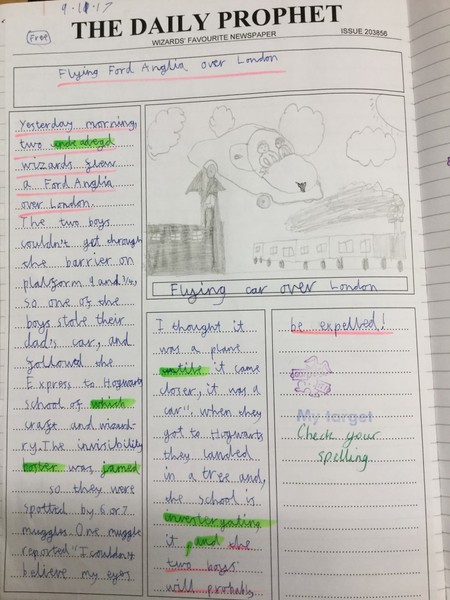 9.11.17
Free
THE DAILY PROPHET
WIZARDS' FAVOURITE NEWSPAPER
ISSUE 203856
Flying Ford Anglia over London
Yesterday morning,
two underadegd
wizards flew
a Ford Anglia
over London.
The two boys
couldn't get through
the barrier on
platform 9 and ¾,
so one of the
boys stole their
dad's car, and
followed the
Express to Hogwarts
school of which
craft and wizard-
ry. The invisibility
boster was jamed
so they were
spotted by 6 or 7
muggles. One muggle
reported "I couldn't
believe my eyes
Flying car over London
I thought it
was a plane
untile it came
closer, it was a
car". when they
got to Hogwarts
they landed
in a tree and,
the school is
investergating
it and the
two boys
will probably
be expelled!
My target
Check your
spelling